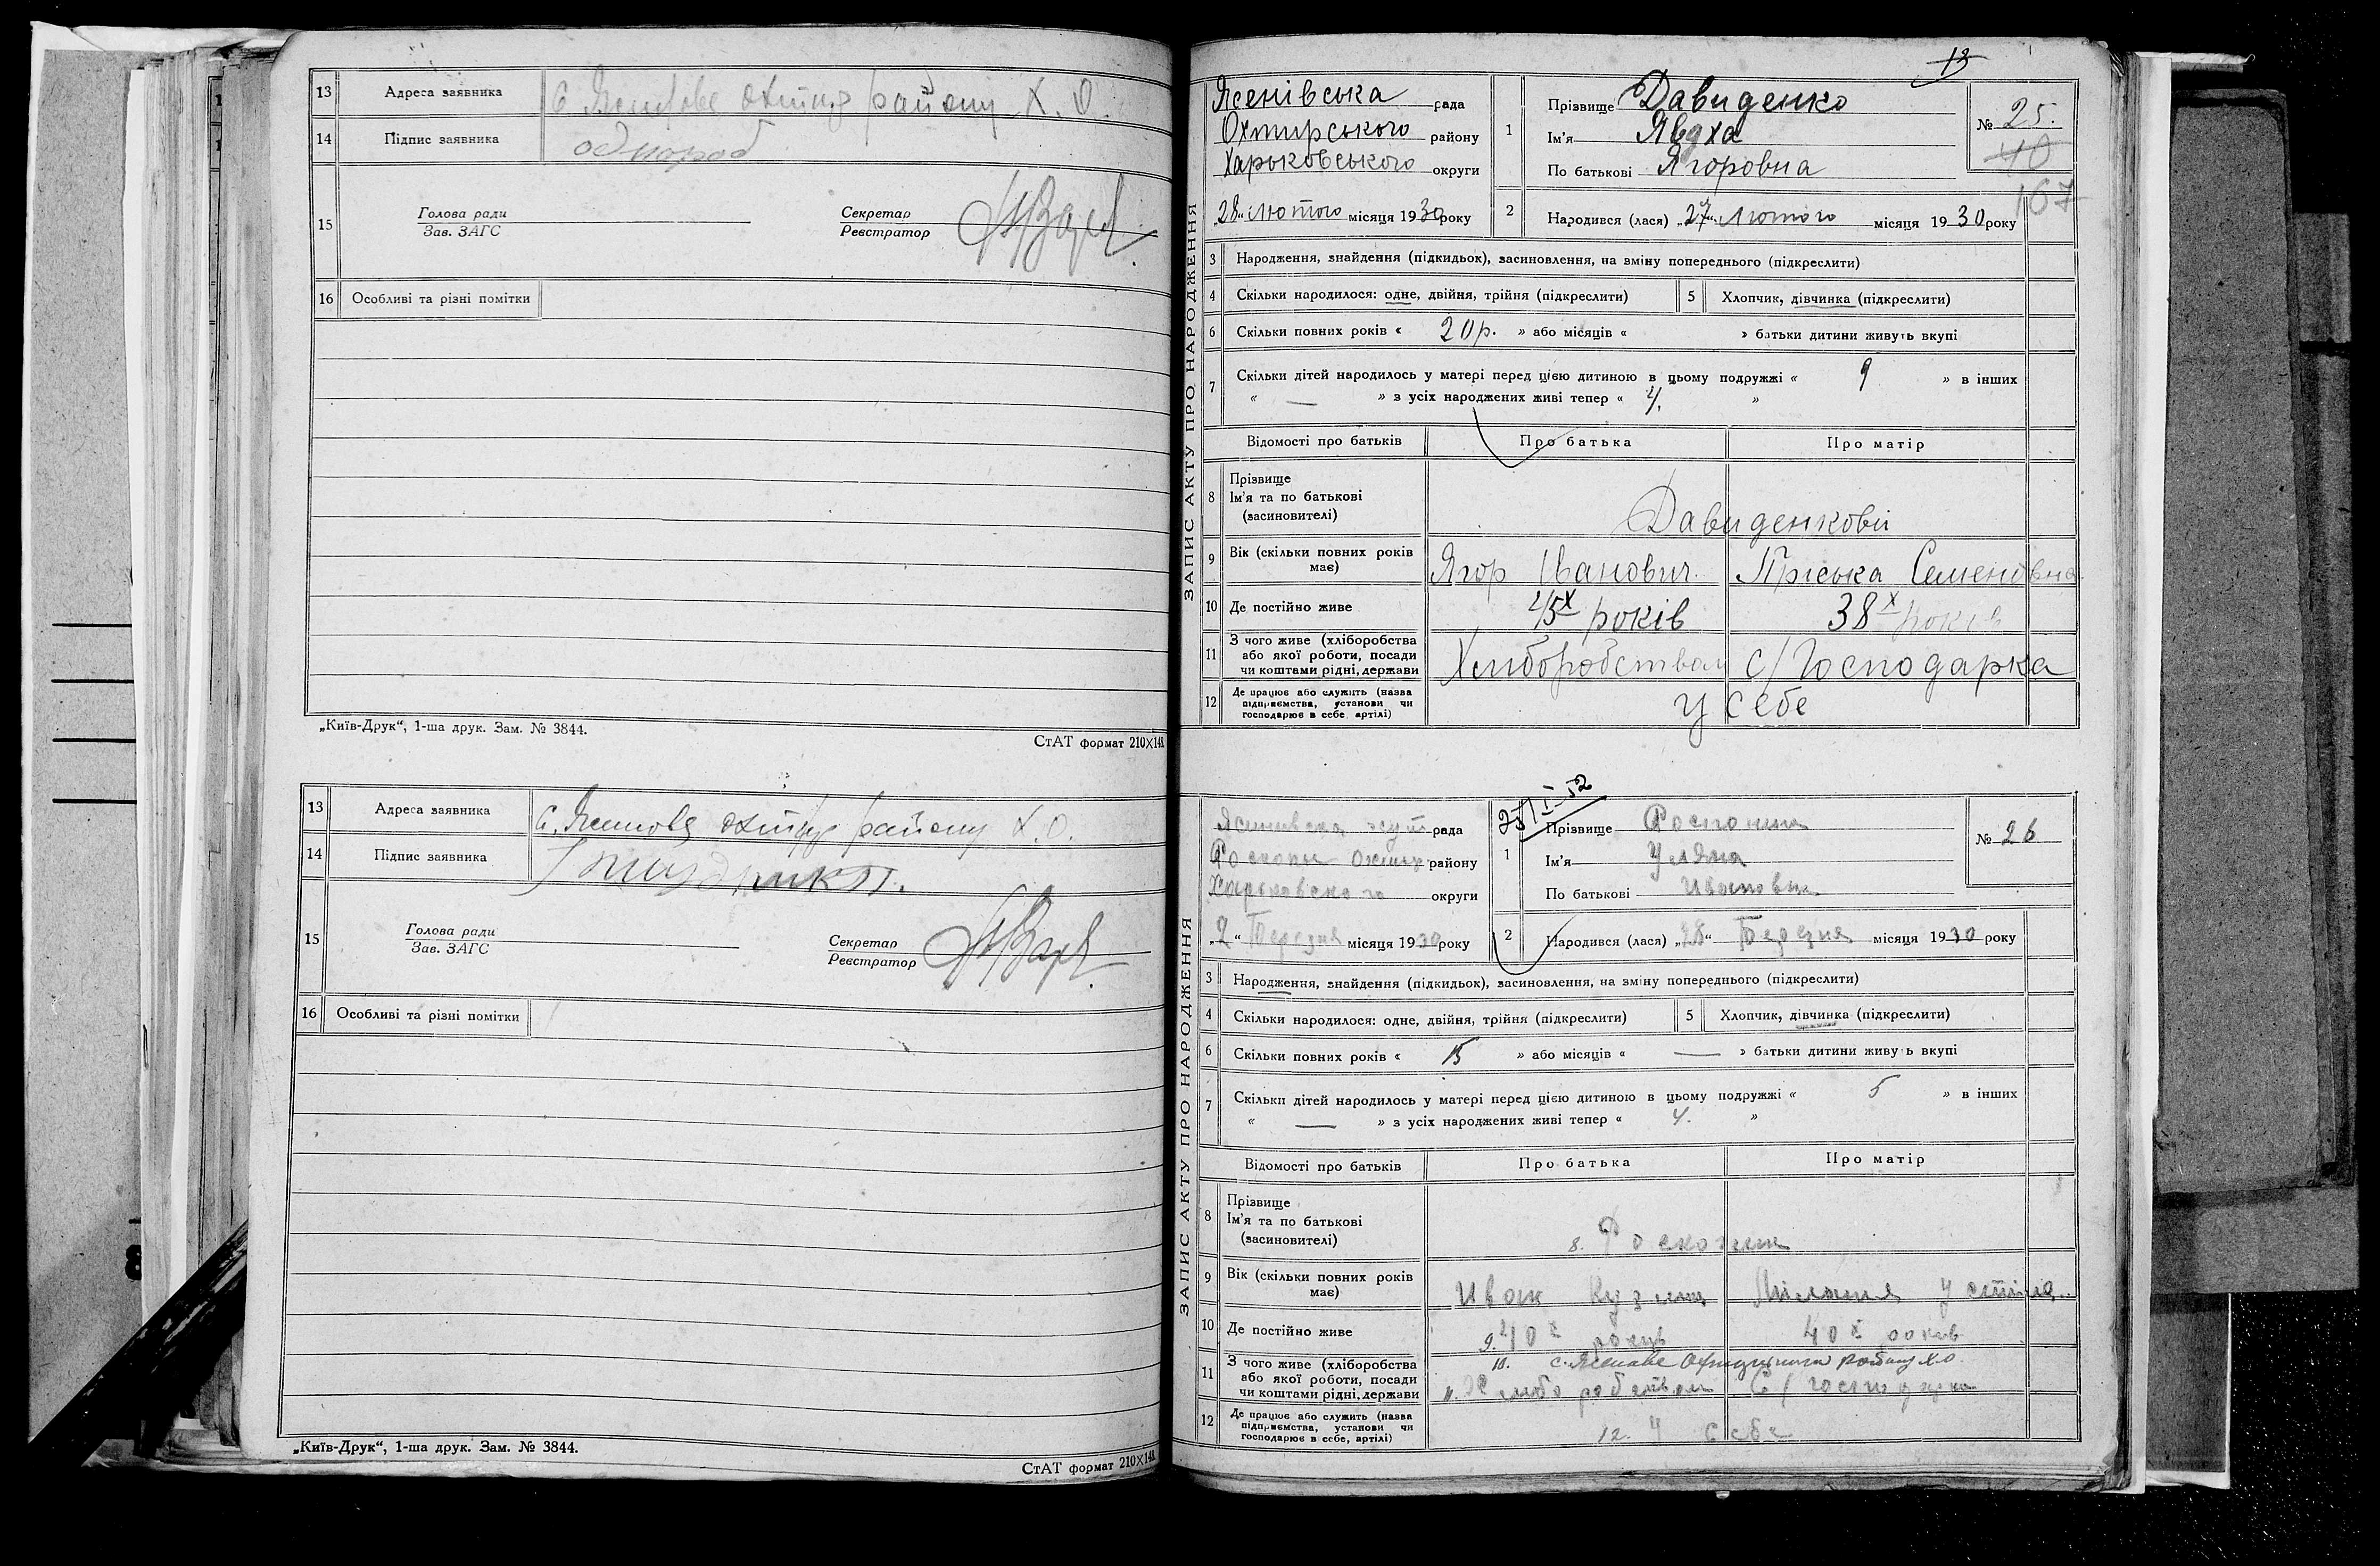 13 Адреса заявника С. Ясенове Охтир району Х. О.
14 Підпис заявника однороб
15 Голова ради Секретар
Зав. ЗАГС Реєстратор
16 Особливі та різні помітки
„Київ-Друк“, 1-ша друк. Зам. № 3844.
СтАТ формат 210X148
13 Адреса заявника С. Ясенове Охтир району Х. О.
14 Підпис заявника
15 Голова ради Секретар
Зав. ЗАГС Реєстратор
16 Особливі та різні помітки
„Київ-Друк“, 1-ша друк. Зам. № 3844.
СтАТ формат 210X148
13
ЗАПИС АКТУ ПРО НАРОДЖЕННЯ
Ясенівська рада
Охтирського району
Харьковського округи
„28“ лютого місяця 1930 року
1 Прізвище Давиденко
Ім'я Явдха
По батькові Ягоровна
№ 25.
40
167
2 Народився (лася) „27“ Лютого місяця 1930 року
3 Народження, знайдення (підкидьок), засиновлення, на зміну попереднього (підкреслити)
4 Скільки народилося: одне, двійня, трійня (підкреслити) 5 Хлопчик, дівчинка (підкреслити)
6 Скільки повних років « 20 р. » або місяців « » батьки дитини живуть вкупі
7 Скільки дітей народилось у матері перед цією дитиною в цьому подружжі « 9 » в інших
« — » з усіх народжених живі тепер « 4. »
Відомості про батьків Про батька Про матір
8 Прізвище
Ім'я та по батькові
(засиновителі)
Давиденкови
9 Вік (скільки повних років має) Ягор Іванович. Пріська Семеновна
10 Де постійно живе 45х років 38х років
11 З чого живе (хліборобства
або якої роботи, посади
чи коштами рідні, держави
Хліборобствам С/Господарка
12 Де працює або служить (назва
підприємства, установи чи
господарює в себе, артілі)
У себе
ЗАПИС АКТУ ПРО НАРОДЖЕННЯ
25/I-52
рада
району
Харьковского округи
„2“ Березня місяця 1930 року
1 Прізвище
Ім'я Уляна
По батькові Ивановна
№ 26
2 Народився (лася) „28“ Березня місяця 1930 року
3 Народження, знайдення (підкидьок), засиновлення, на зміну попереднього (підкреслити)
4 Скільки народилося: одне, двійня, трійня (підкреслити) 5 Хлопчик, дівчинка (підкреслити)
6 Скільки повних років « 15 » або місяців « — » батьки дитини живуть вкупі
7 Скільки дітей народилось у матері перед цією дитиною в цьому подружжі « 5 » в інших
« — » з усіх народжених живі тепер « 4. »
Відомості про батьків Про батька Про матір
8 Прізвище
Ім'я та по батькові
(засиновителі)
8.
9 Вік (скільки повних років має) Иван Кузмич
10 Де постійно живе 9. 40х років 40х років
10. с. Ясенове Охтирського району Х.О.
11 З чого живе (хліборобства
або якої роботи, посади
чи коштами рідні, держави
11. Хлиборобством С/господарка
12 Де працює або служить (назва
підприємства, установи чи
господарює в себе, артілі)
12. У себе